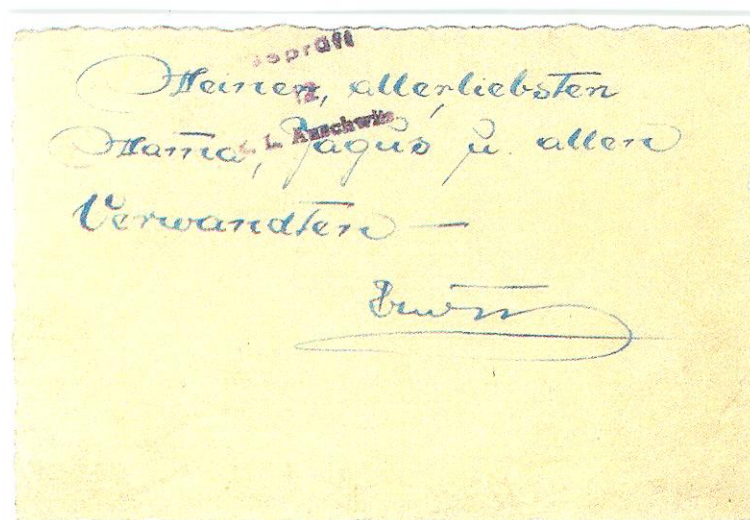 Geprüft
12
K. L. Auschwitz
Meinen, allerliebsten
Mama, Jaguś u. allen
Verwandten —